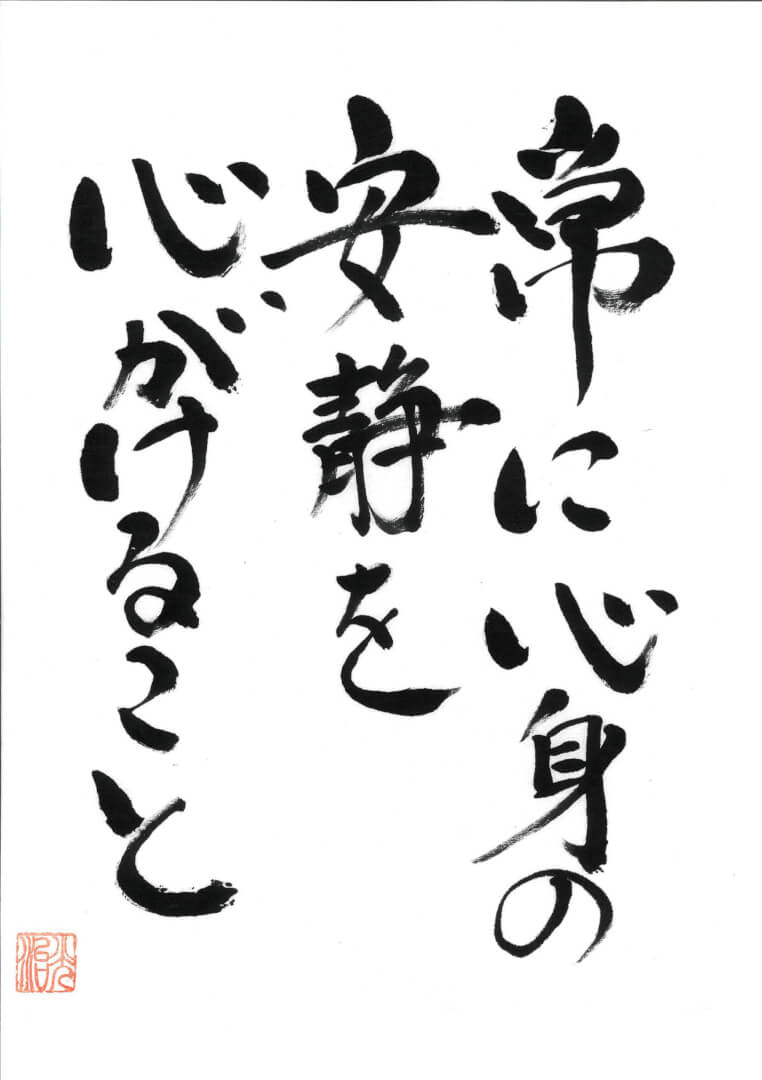 常に心身の
安静を
心がけること